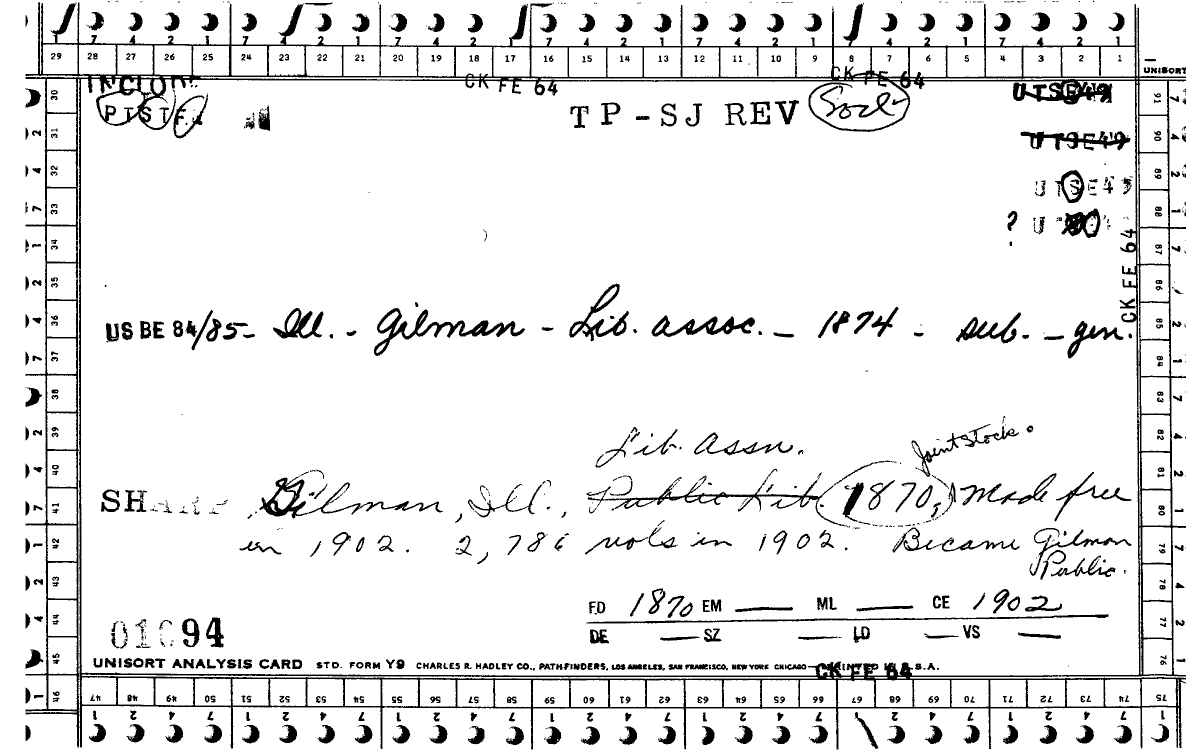 7 4 2 1 7 4 2 1 7 4 2 1 7 4 2 1 7 4 2 1 7 4 2 1 7 4 2 1
29 28 27 26 25 24 23 22 21 20 19 18 17 16 15 14 13 12 11 10 9 8 7 6 5 4 3 2 1
UNISORT
INCLUDE CK FE 64 CK FE 64 UTSE49
PTSTF. TP-SJ REV Socl
UTSE49
UTSE49
? U
CK FE 64
US BE 84/85- Ill. - Gilman - Lib. assoc. - 1874 - sub. - gen.
Lib. Assn. Joint Stock.
SHARP Gilman, Ill., Public Lib. 1870, Made free
in 1902. 2,786 vols in 1902. Became Gilman
Public.
FD 1870 EM — ML — CE 1902
DE — SZ — LD — VS —
01094
UNISORT ANALYSIS CARD STD. FORM Y9 CHARLES R. HADLEY CO., PATHFINDERS, LOS ANGELES, SAN FRANCISCO, NEW YORK CHICAGO—PRINTED IN U.S.A.
CK FE 64
30 31 32 33 34 35 36 37 38 39 40 41 42 43 44 45 46
91 90 89 88 87 86 85 84 83 82 81 80 79 78 77 76 75
47 48 49 50 51 52 53 54 55 56 57 58 59 60 61 62 63 64 65 66 67 68 69 70 71 72 73 74
1 2 4 7 1 2 4 7 1 2 4 7 1 2 4 7 1 2 4 7 1 2 4 7 1 2 4 7